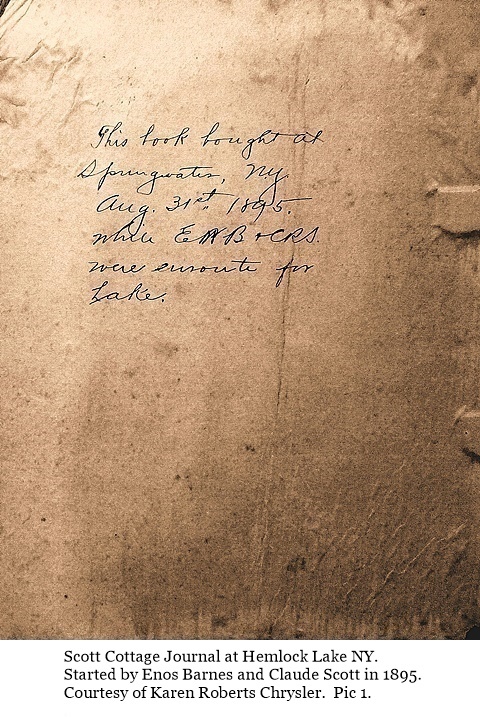 This book bought at
Springwater, Ny.
Aug. 31st, 1895.
while EWB & CRS.
were enroute for
Lake.
Scott Cottage Journal at Hemlock Lake NY.
Started by Enos Barnes and Claude Scott in 1895.
Courtesy of Karen Roberts Chrysler.  Pic 1.